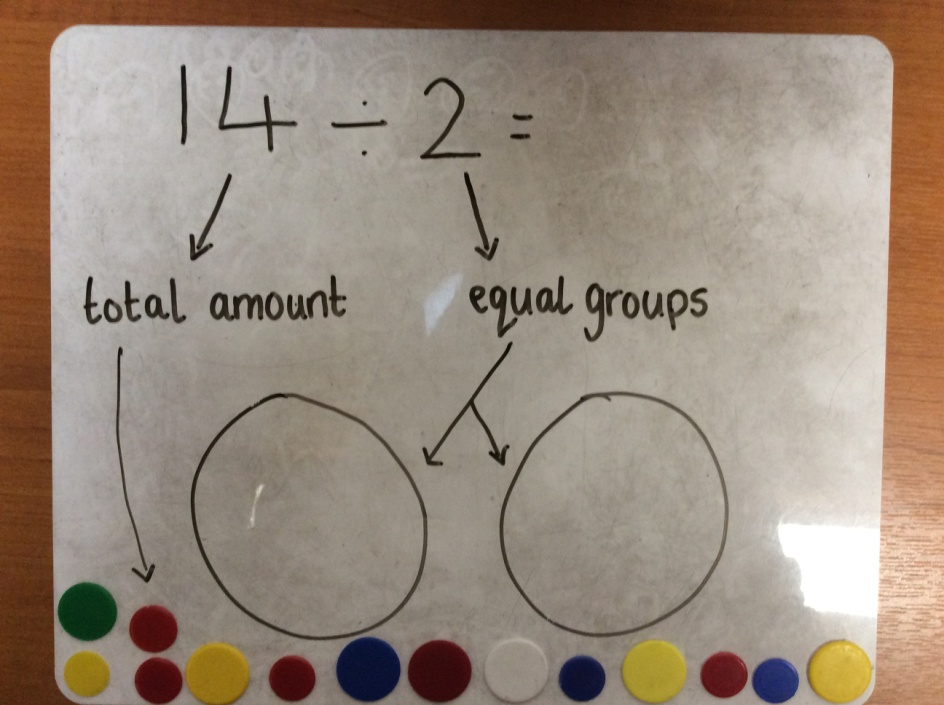 14 ÷ 2 =
total amount equal groups